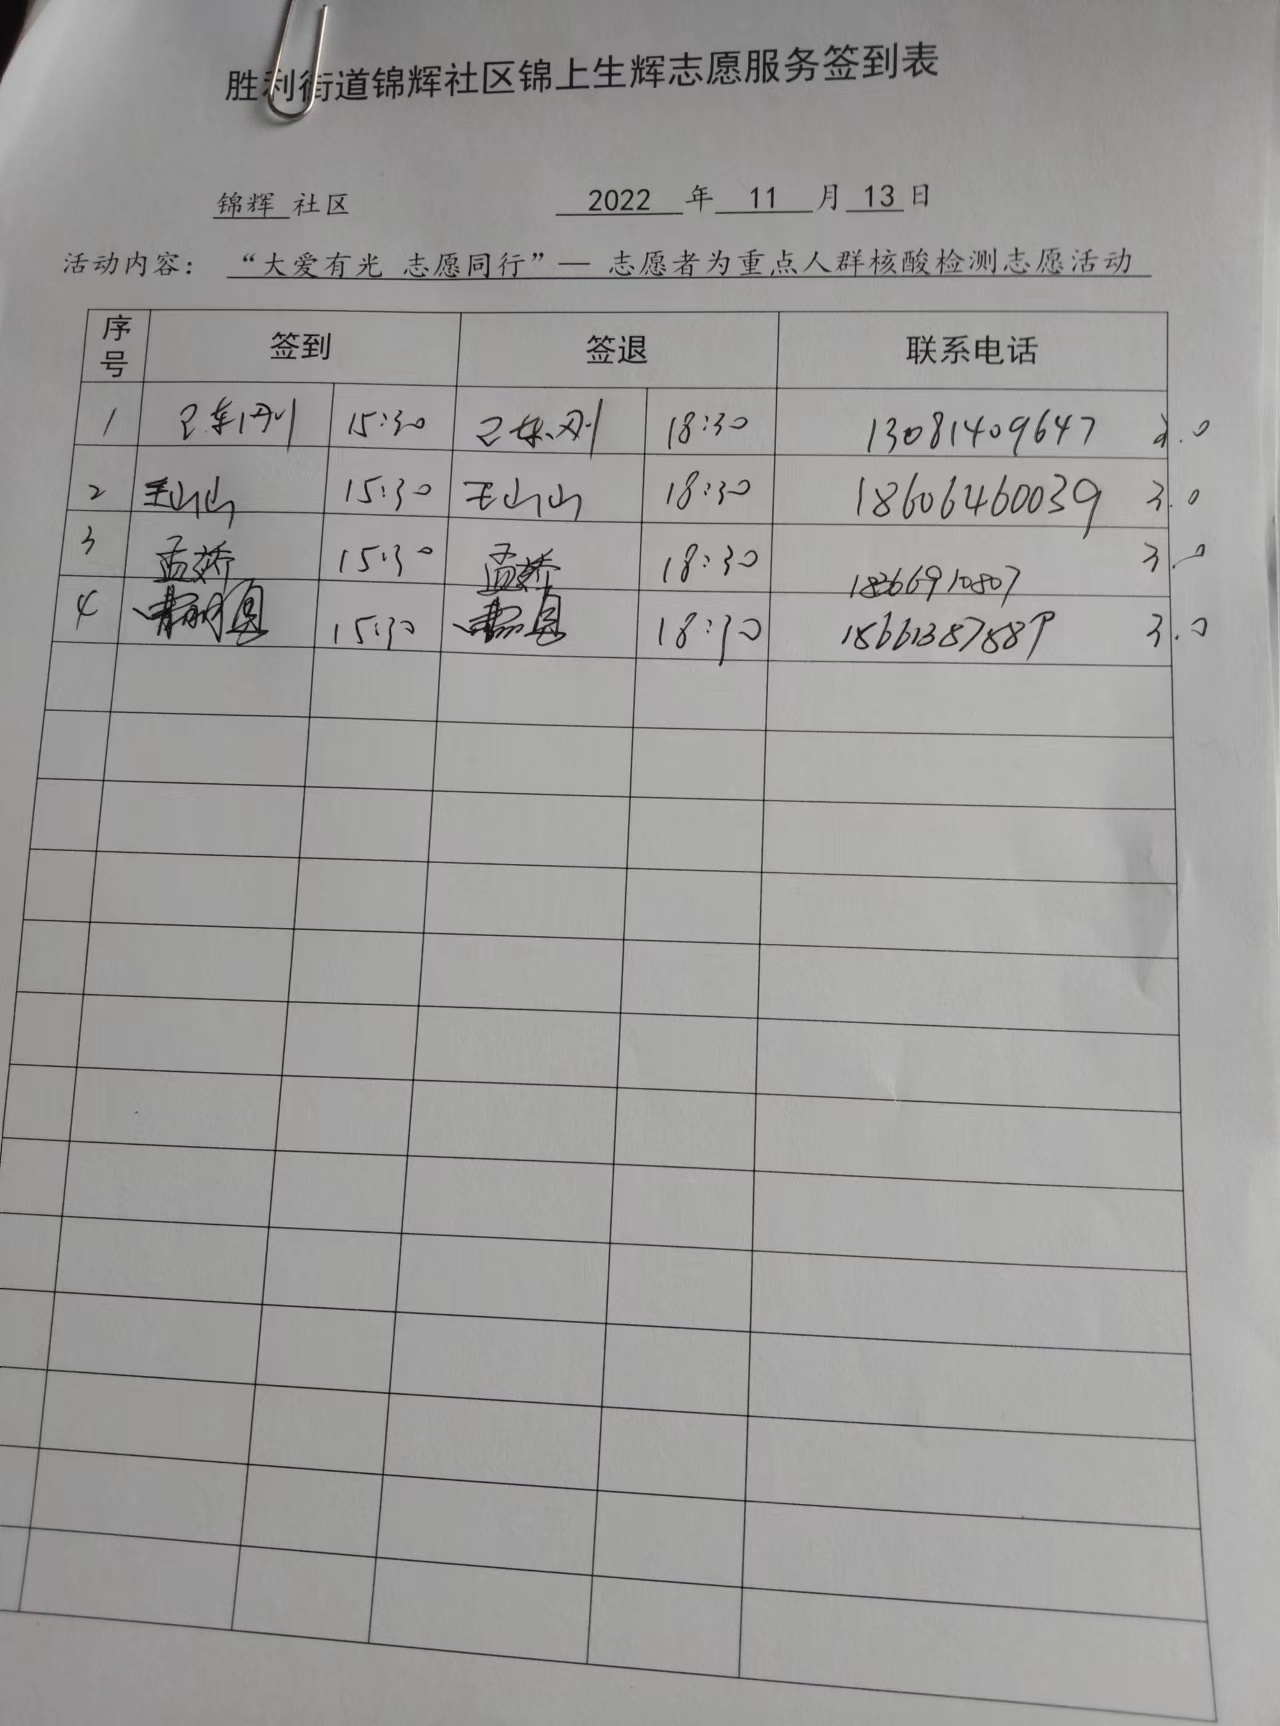 胜利街道锦辉社区锦上生辉志愿服务签到表
锦辉 社区 2022 年 11 月 13 日
活动内容: “大爱有光 志愿同行”— 志愿者为重点人群核酸检测志愿活动
序号 签到 签退 联系电话
1 15:30 18:30 13081409647 3.0
2 王山山 15:30 王山山 18:30 18606460039 3.0
3 孟娇 15:30 孟娇 18:30 3.0
4 15:30 18:30 3.0